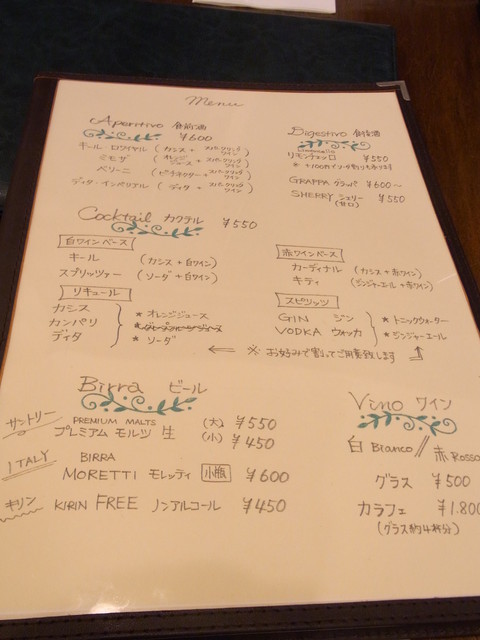 Menu
Aperitivo 食前酒
¥600
キール ロワイヤル (カシス + スパークリングワイン)
ミモザ (オレンジジュース + スパークリングワイン)
ベリーニ (ピーチネクター + スパークリングワイン)
ディタ・インペリアル (ディタ + スパークリングワイン)
Digestivo 食後酒
Limoncello
リモンチェッロ ¥550
GRAPPA グラッパ ¥600〜
SHERRY シェリー(甘口) ¥550
Cocktail カクテル ¥550
白ワインベース
キール (カシス + 白ワイン)
スプリッツァー (ソーダ + 白ワイン)
赤ワインベース
カーディナル (カシス + 赤ワイン)
キティ (ジンジャーエール + 赤ワイン)
リキュール
カシス
カンパリ
ディタ
* オレンジジュース
* グレープフルーツジュース
* ソーダ
スピリッツ
GIN ジン
VODKA ウォッカ
* トニックウォーター
* ジンジャーエール
※ お好みで割ってご用意致します
Birra ビール
サントリー PREMIUM MALTS
プレミアム モルツ 生 (大) ¥550
(小) ¥450
ITALY BIRRA
MORETTI モレッティ 小瓶 ¥600
キリン KIRIN FREE ノンアルコール ¥450
Vino ワイン
白 Bianco // 赤 Rosso
グラス ¥500
カラフェ ¥1.800
(グラス約4杯分)